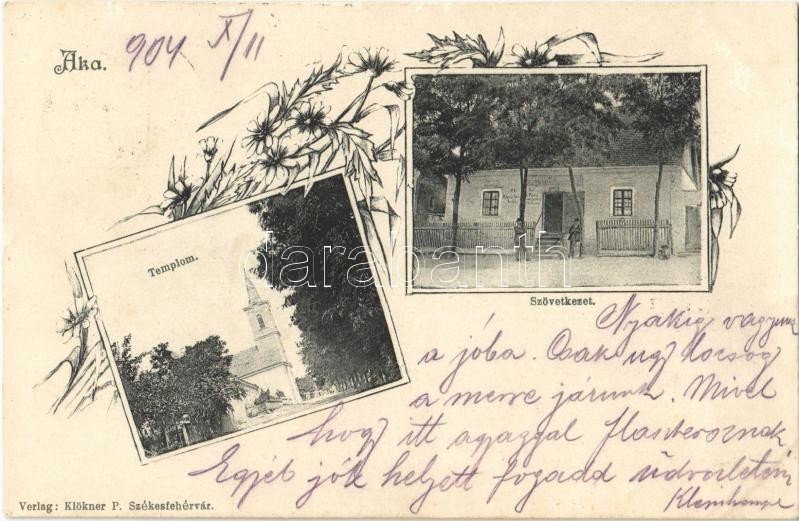 Aka.
904 X/11
Templom.
Szövetkezet.
Nyakig vagyunk
a jóba. Csak úgy locsog
a merre járunk. Mivel
hogy itt agyaggal flaszteroznak
Egyéb jók helyett fogadd üdvözletem
darabanth
Verlag: Klökner P. Székesfehérvár.